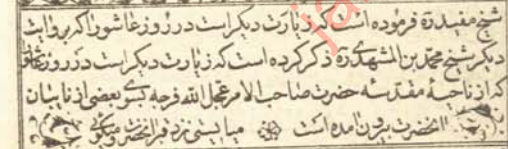 شیخ مفید ره فرموده است که زیارت دیگر است در روز عاشورا که بروایت
دیگر شیخ محمد بن المشهدی ره ذکر کرده است که زیارت دیگر است در روز عاشورا
که از ناحیهٔ مقدسه حضرت صاحب الامر عجل الله فرجه بسوی بعضی از نایبان
آنحضرت بیرون آمده است میبایستی نزد قبر آنحضرت و میگوئی